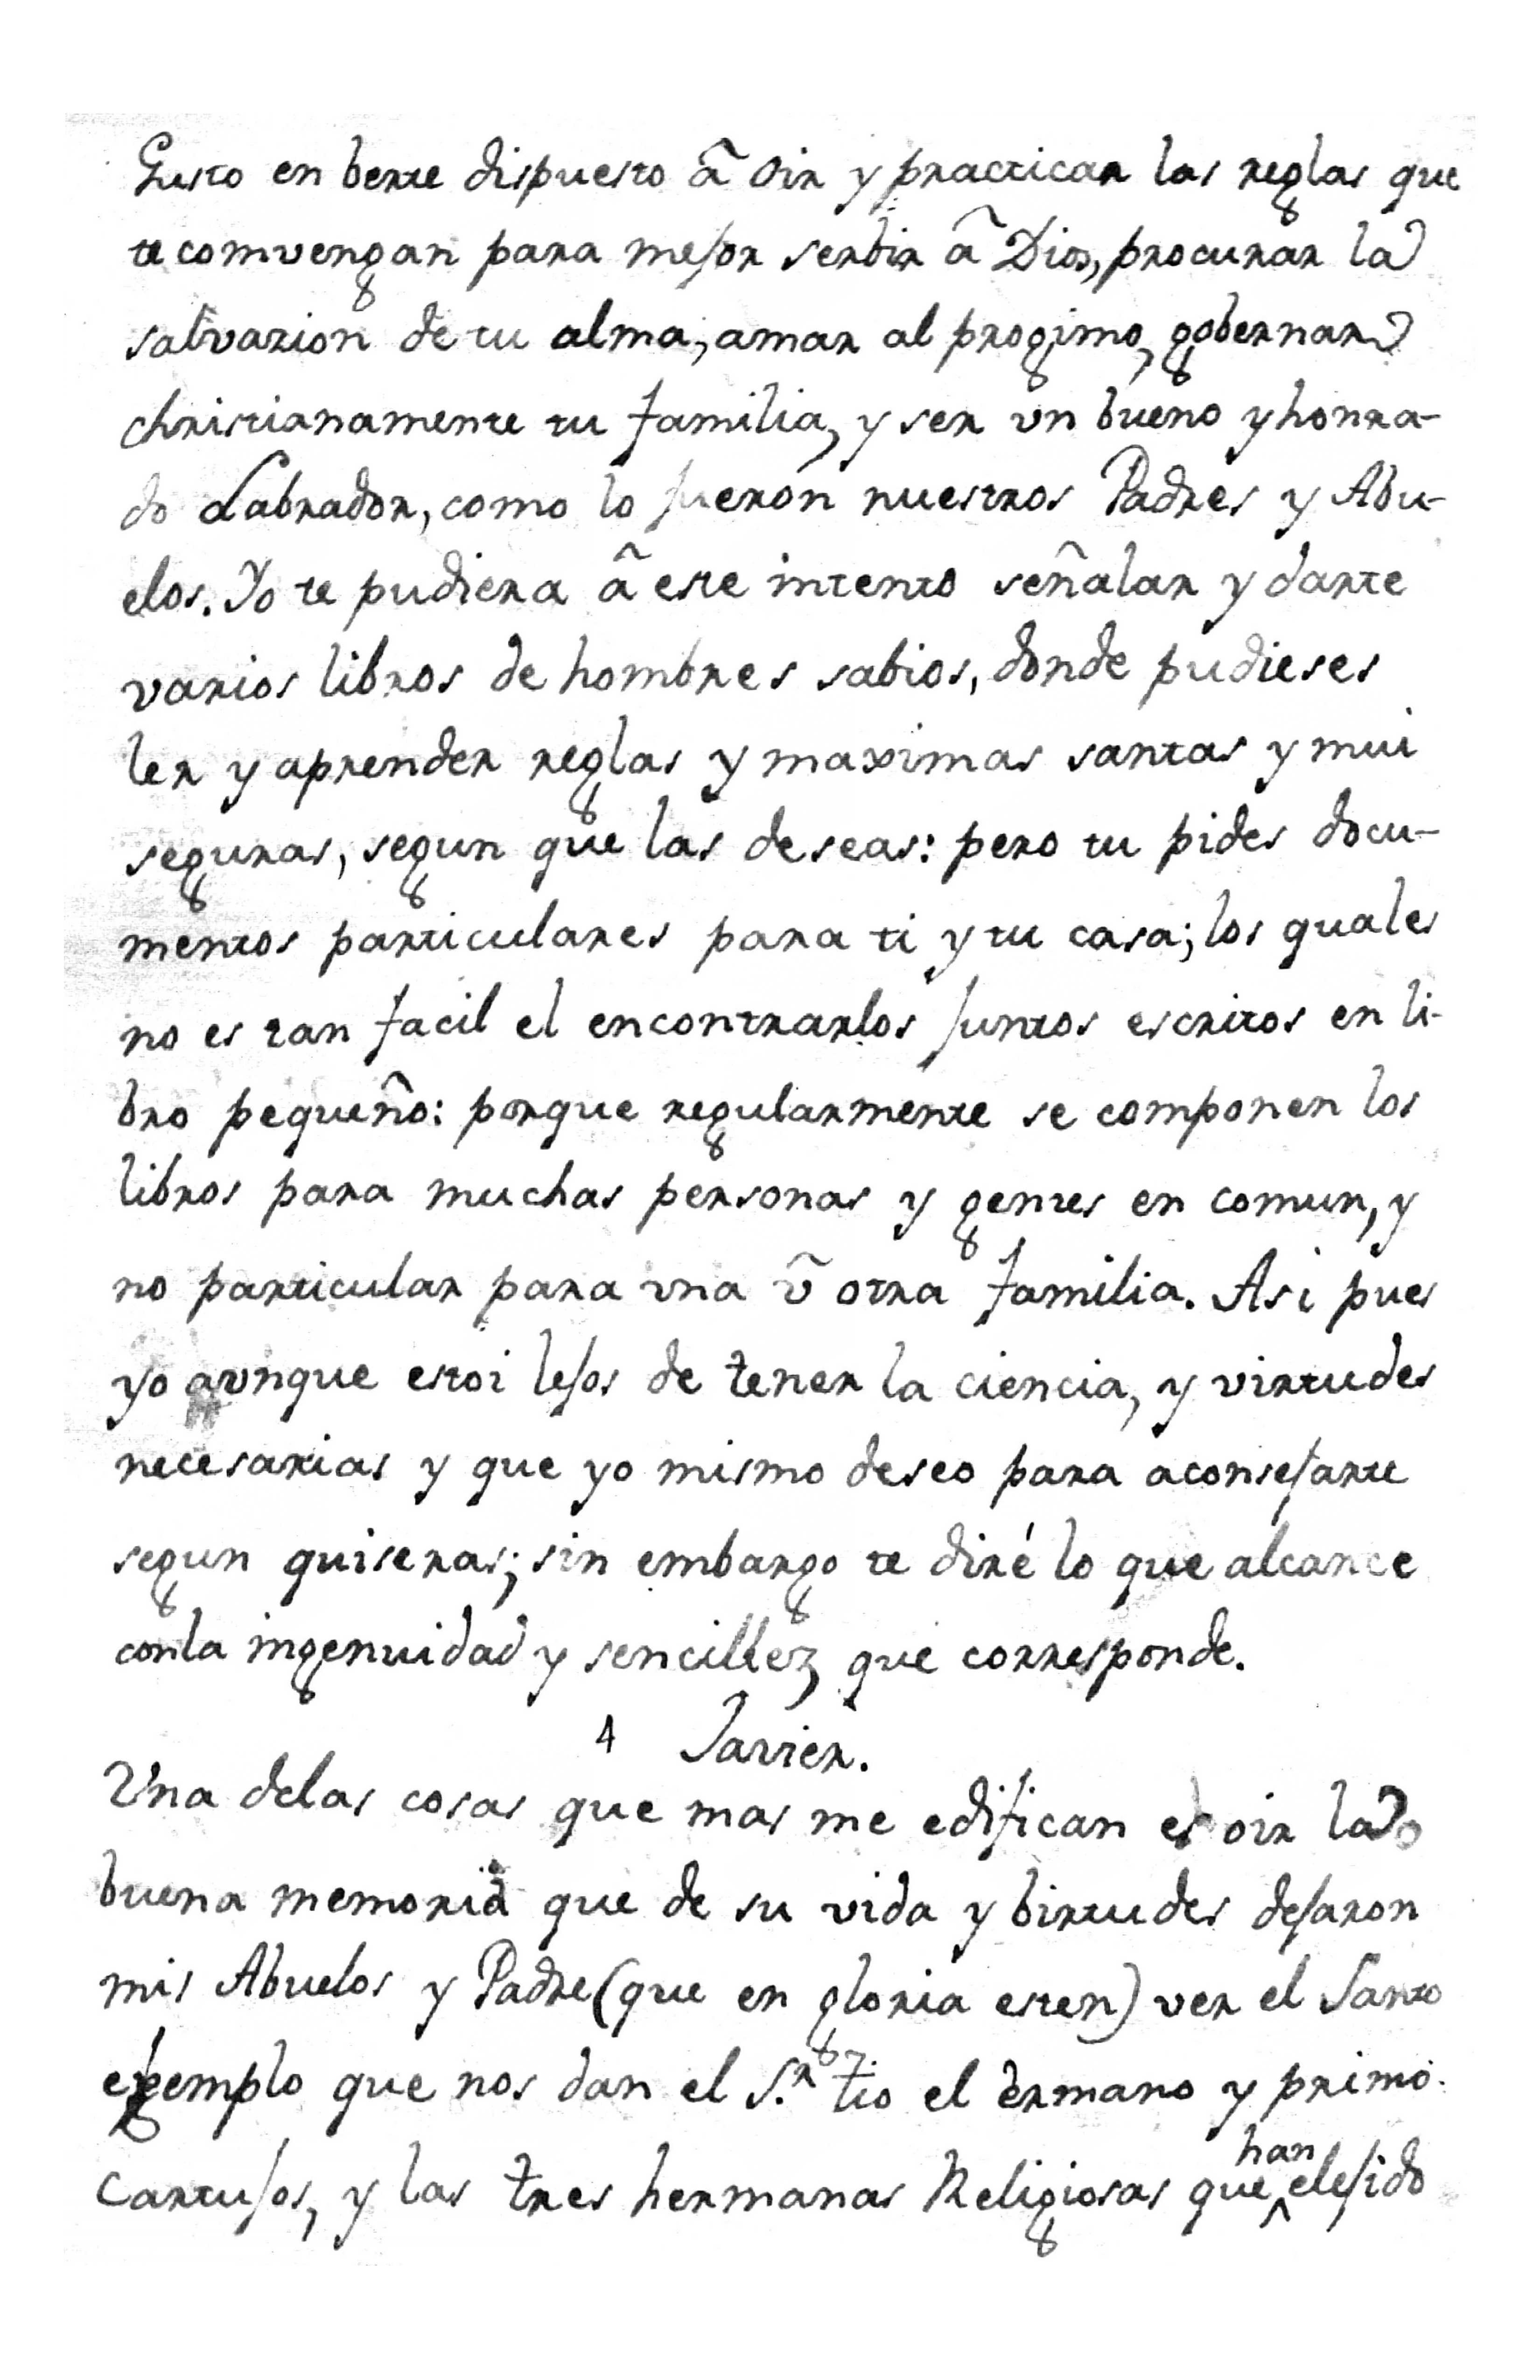 Gusto en berte dispuesto â oir y practicar las reglas que
te comvengan para mejor serbir â Dios, procurar la
salvazion de tu alma, amar al progimo, gobernar
christianamente tu familia, y ser vn bueno y honra-
do Labrador, como lo fueron nuestros Padres y Abu-
elos. Yo te pudiera â este intento señalar y darte
varios libros de hombres sabios, donde pudieses
ler y aprender reglas y maximas santas y mui
seguras, segun que las deseas: pero tu pides docu-
mentos particulares para ti y tu casa; los quales
no es tan facil el encontrarlos juntos escritos en li-
bro pequeño: porque regularmente se componen los
libros para muchas personas y gentes en comun, y
no particular para vna v̂ otra familia. Asi pues
yo avnque estoi lejos de tener la ciencia, y virtudes
necesarias y que yo mismo deseo para aconsejarte
segun quiseras; sin embargo te diré lo que alcance
con la ingenuidad y sencillez que corresponde.
4 Javier.
Vna delas cosas que mas me edifican es oir la
buena memoria que de su vida y birtudes dejaron
mis Abuelos y Padre (que en gloria esten) ver el Santo
ejemplo que nos dan el S.r tio el ermano y primo
Cartujos, y las tres hermanas Religiosas que han elejido